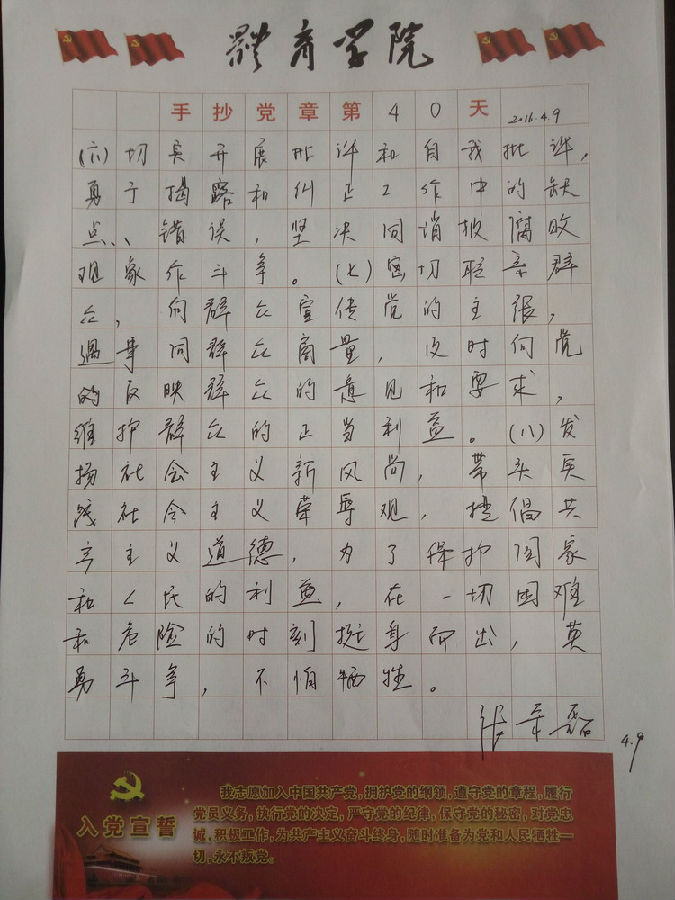 體育学院
手抄党章第40天 2016.4.9
(六)切实开展批评和自我批评,
勇于揭露和纠正工作中的缺
点、错误,坚决同消极腐败
现象作斗争。(七)密切联系群
众,向群众宣传党的主张,
遇事同群众商量,及时向党
的反映群众的意见和要求,
维护群众的正当利益。(八)发
扬社会主义新风尚,带头实
践社会主义荣辱观,提倡共
产主义道德,为了保护国家
和人民的利益,在一切困难
和危险的时刻挺身而出,英
勇斗争,不怕牺牲。
4.9
入党宣誓
我志愿加入中国共产党,拥护党的纲领,遵守党的章程,履行
党员义务,执行党的决定,严守党的纪律,保守党的秘密,对党忠
诚,积极工作,为共产主义奋斗终身,随时准备为党和人民牺牲一
切,永不叛党。